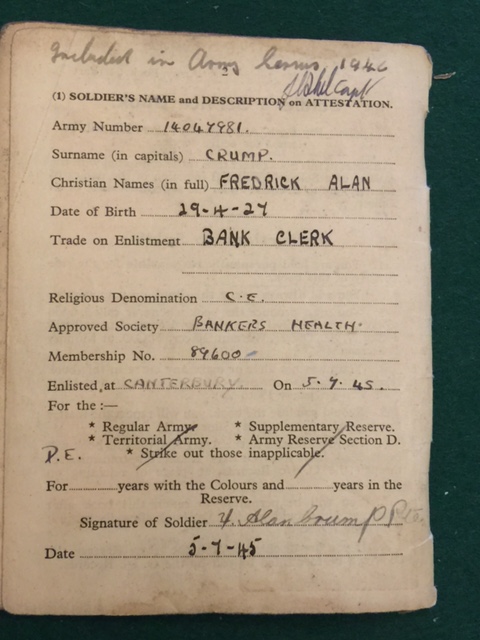 Included in Army Census 1946
2
(1) SOLDIER'S NAME and DESCRIPTION on ATTESTATION.
Army Number 14047981.
Surname (in capitals) CRUMP.
Christian Names (in full) FREDRICK ALAN
Date of Birth 29-4-27
Trade on Enlistment BANK CLERK
Religious Denomination C.E.
Approved Society BANKERS HEALTH.
Membership No. 89600
Enlisted at CANTERBURY. On 5.7.45.
For the :—
* Regular Army. * Supplementary Reserve.
* Territorial Army. * Army Reserve Section D.
D.E. * Strike out those inapplicable.
For years with the Colours and years in the
Reserve.
Signature of Soldier F. Alan Crump
Date 5-7-45